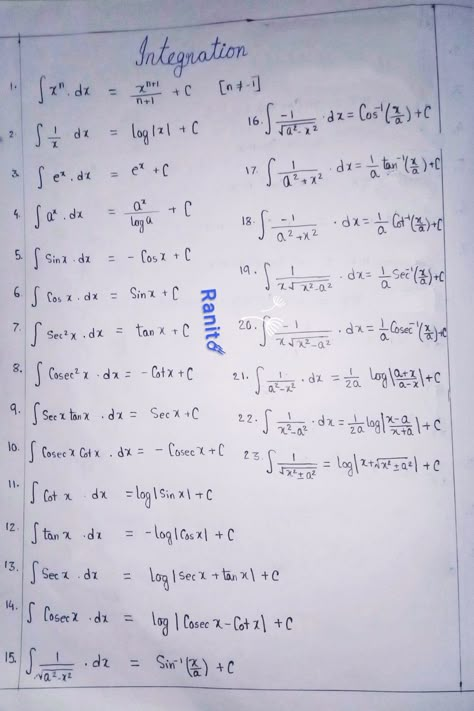 Integration
1. ∫ xⁿ . dx = xⁿ⁺¹/n+1 + C [n ≠ -1]
2. ∫ 1/x dx = log|x| + C
3. ∫ eˣ . dx = eˣ + C
4. ∫ aˣ . dx = aˣ/log a + C
5. ∫ Sin x . dx = - Cos x + C
6. ∫ Cos x . dx = Sin x + C
7. ∫ Sec²x . dx = tan x + C
8. ∫ Cosec²x . dx = - Cot x + C
9. ∫ Sec x tan x . dx = Sec x + C
10. ∫ Cosec x Cot x . dx = - Cosec x + C
11. ∫ Cot x . dx = log|Sin x| + C
12. ∫ tan x . dx = - log|Cos x| + C
13. ∫ Sec x . dx = log|Sec x + tan x| + C
14. ∫ Cosec x . dx = log|Cosec x - Cot x| + C
15. ∫ 1/√a²-x² . dx = Sin⁻¹(x/a) + C
16. ∫ -1/√a²-x² . dx = Cos⁻¹(x/a) + C
17. ∫ 1/a²+x² . dx = 1/a tan⁻¹(x/a) + C
18. ∫ -1/a²+x² . dx = 1/a Cot⁻¹(x/a) + C
19. ∫ 1/x√x²-a² . dx = 1/a Sec⁻¹(x/a) + C
20. ∫ -1/x√x²-a² . dx = 1/a Cosec⁻¹(x/a) + C
21. ∫ 1/a²-x² . dx = 1/2a log|a+x/a-x| + C
22. ∫ 1/x²-a² . dx = 1/2a log|x-a/x+a| + C
23. ∫ 1/√x²±a² = log|x+√x²±a²| + C
Ranit